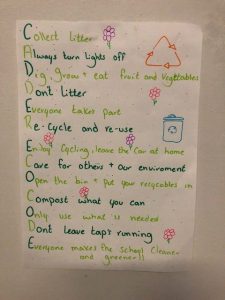 Collect litter
Always turn lights off
Dig, grow + eat fruit and vegetables
Dont Litter
Everyone takes part
Re-Cycle and re-use
Enjoy Cycling, leave the Car at home
Care for others + our enviroment
Open the bin + put your recyclables in
Compost what you can
Only use what is needed
Dont leave tap's running
Everyone makes the school Cleaner
and greener!!